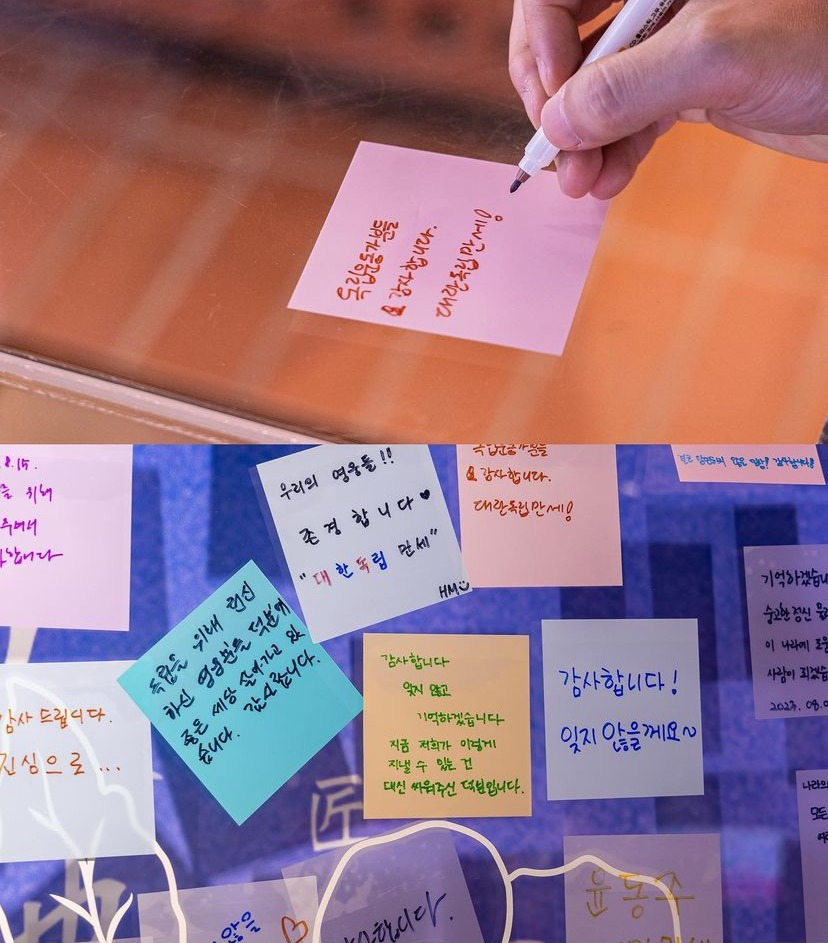 독립운동가분들
감사합니다.
대한독립만세!
8.15.
위해
우리의 영웅들!!
존경합니다♥
"대한독립 만세"
HM
독립운동가분들
감사합니다.
대한독립만세!
독립을 위해 헌신
하신 영웅분들 덕분에
좋은 세상 살아가고 있
습니다. 감사합니다.
감사합니다
잊지 않고
기억하겠습니다
지금 저희가 이렇게
지낼 수 있는 건
대신 싸워주신 덕분입니다.
감사합니다!
잊지 않을게요~
기억하겠습니
숭고한 정신
이 나라에 도움
사람이 되겠습
2023. 08.0
감사 드립니다.
진심으로...
나라의
모든
匠
않을
합니다.
윤동주